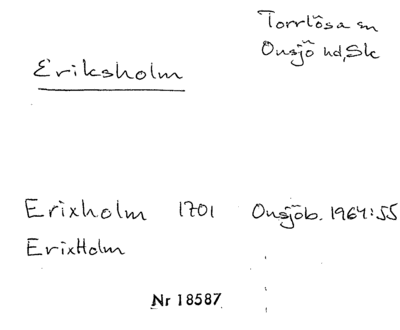 Torrlösa sn
Onsjö hd, Sk
Eriksholm
Erixholm 1701 Onsjöb. 1964:55
ErixHolm
Nr 18587